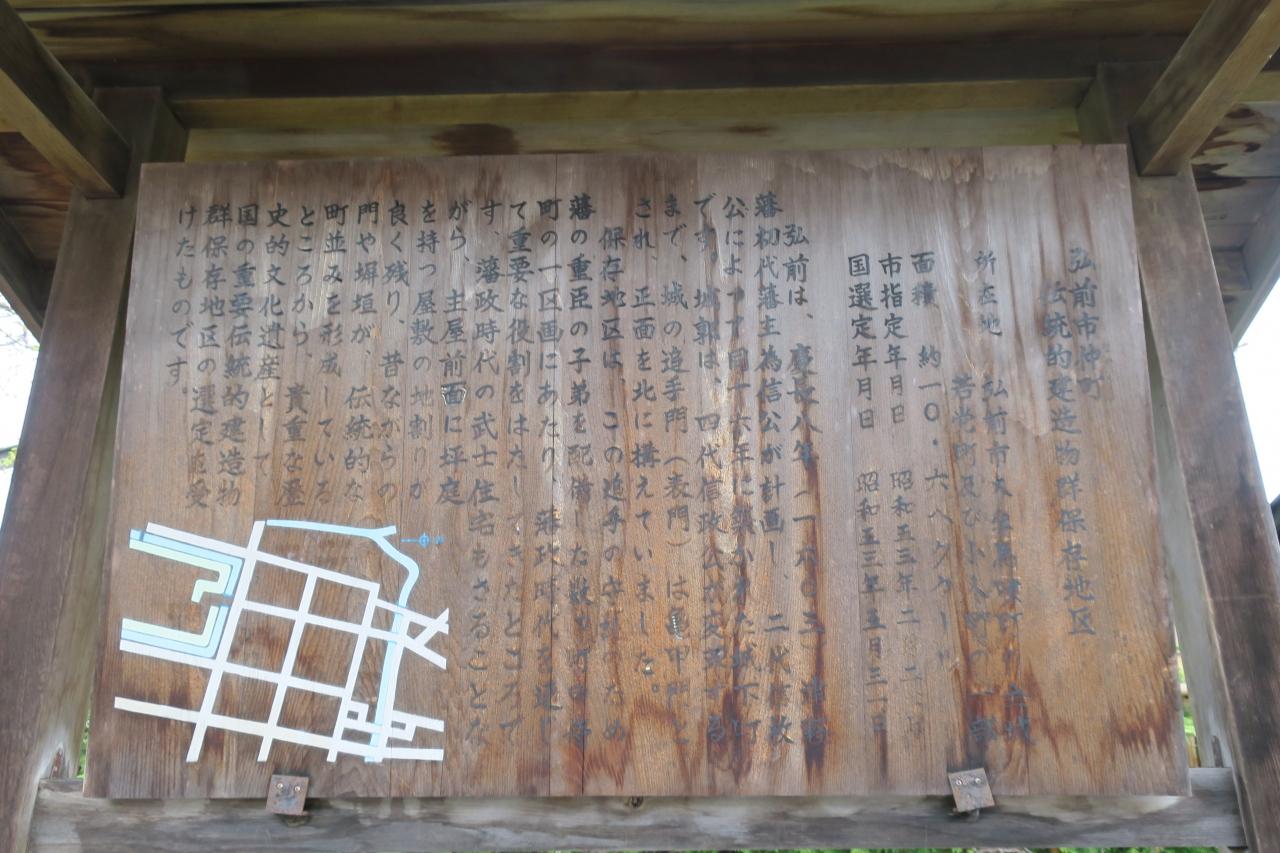 弘前市仲町
伝統的建造物群保存地区
所在地　弘前市大字馬喰町
若党町及び小人町の一部
面積　約一〇・六ヘクタール
市指定年月日　昭和五三年二月二
国選定年月日　昭和五三年五月三一日
弘前は、慶長八年（一六〇三）津軽
藩初代藩主為信公が計画し、二代信牧
公によって同十六年に築かれた城下町
です。城郭は、四代信政公が支配する
まで、城の追手門（表門）は亀甲門と
され、正面を北に構えていました。
保存地区は、この追手の守りのため
藩の重臣の子弟を配備した数ヶ町の
町の一区画にあたり、藩政時代を通し
て重要な役割をはたしてきたところで
す。藩政時代の武士住宅もさることな
がら、主屋前面に坪庭
を持つ屋敷の地割りが
良く残り、昔ながらの
門や塀垣が、伝統的な
町並みを形成している
ところから、貴重な歴
史的文化遺産として、
国の重要伝統的建造物
群保存地区の選定を受
けたものです。